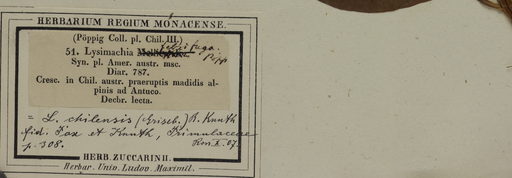 HERBARIUM REGIUM MONACENSE.
(Pöppig Coll. pl. Chil. III.)
51. Lysimachia
Syn. pl. Amer. austr. msc.
Diar. 787.
Cresc. in Chil. austr. praeruptis madidis al-
pinis ad Antuco.
Decbr. lecta.
= L. chilensis (Griseb.) R. Knuth
fid. Pax et Knuth, Primulaceae
p. 308.
HERB. ZUCCARINII.
Herbar. Univ. Ludov. Maximil.